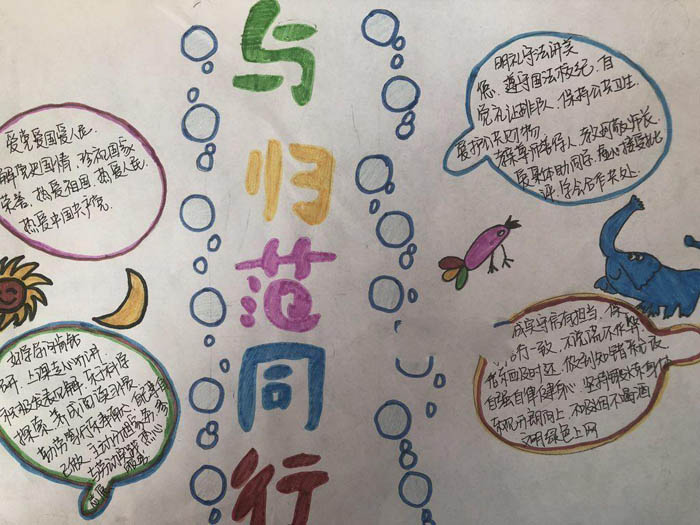 与
归
范
同
行
爱党爱国爱人民.
解党史国情,珍视国家
荣誉,热爱祖国,热爱人民,
热爱中国共产党.
明礼守法讲美
德,遵守国法校纪,自
觉礼让排队,保持公共卫生,
爱护公共财物
孝父母敬师长,
爱集体助同学,虚心接受批
评,学会合作共处.
好学多问肯钻
研,上课专心听讲,
积极发表见解,乐于科学
探索,养成阅读习惯,
勤劳笃行乐奉献 自己事自
己做,主动分担家务,参
与劳动实践,热心
志愿
诚实守信有担当,保
行一致,不说谎不作弊
借东西及时还,做到知错就改
自强自律健身心,坚持锻炼身体
乐观开朗向上,不吸烟不喝酒
文明绿色上网